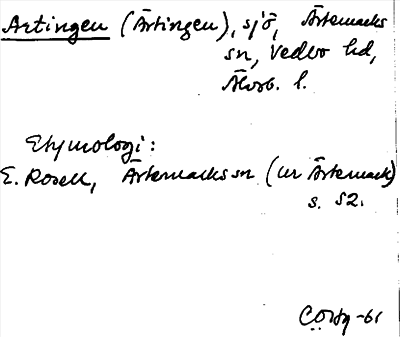 Artingen (Ärtingen), sjö, Ärtemarks
sn, Vedbo hd,
Älvsb. l.
Etymologi:
E. Rosell, Ärtemarks sn (ur Ärtemark)
s. 52.
-61